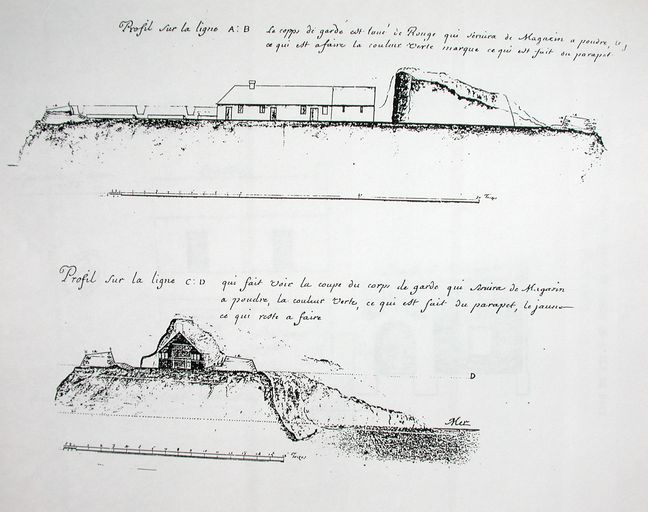 Profil sur la ligne A:B Le corps de garde est lavé de Rouge qui servira de Magasin a poudre, le j
ce qui est a faire la couleur verte marque ce qui est fait du parapet
Toises
Profil sur la ligne C:D qui fait voir la coupe du corps de garde qui servira de Magasin
a poudre, la couleur verte, ce qui est fait du parapet, le jaune
ce qui reste a faire
D
Mer
Toises